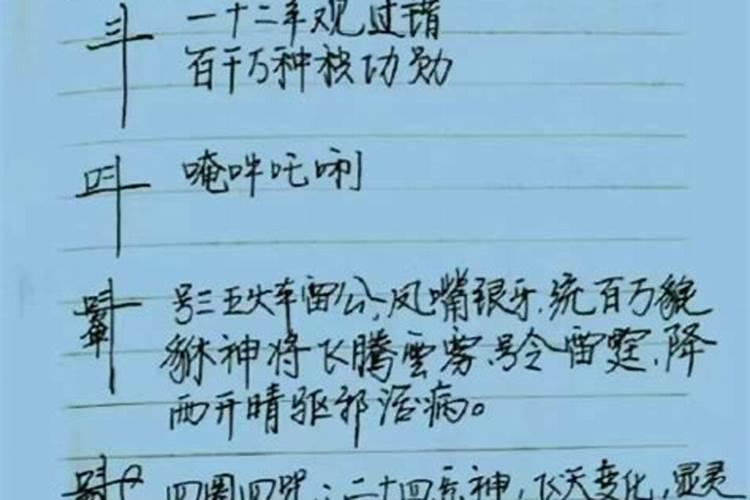 一十二年观过错
百千万种积功勋
唵吽吒唎
号三五火车雷公，凤嘴银牙，统百万貔
貅神将飞腾雲雾，号令雷霆，降
雨开晴驱邪治病。
四圈四咒：二十四元神，飞天变化，显灵